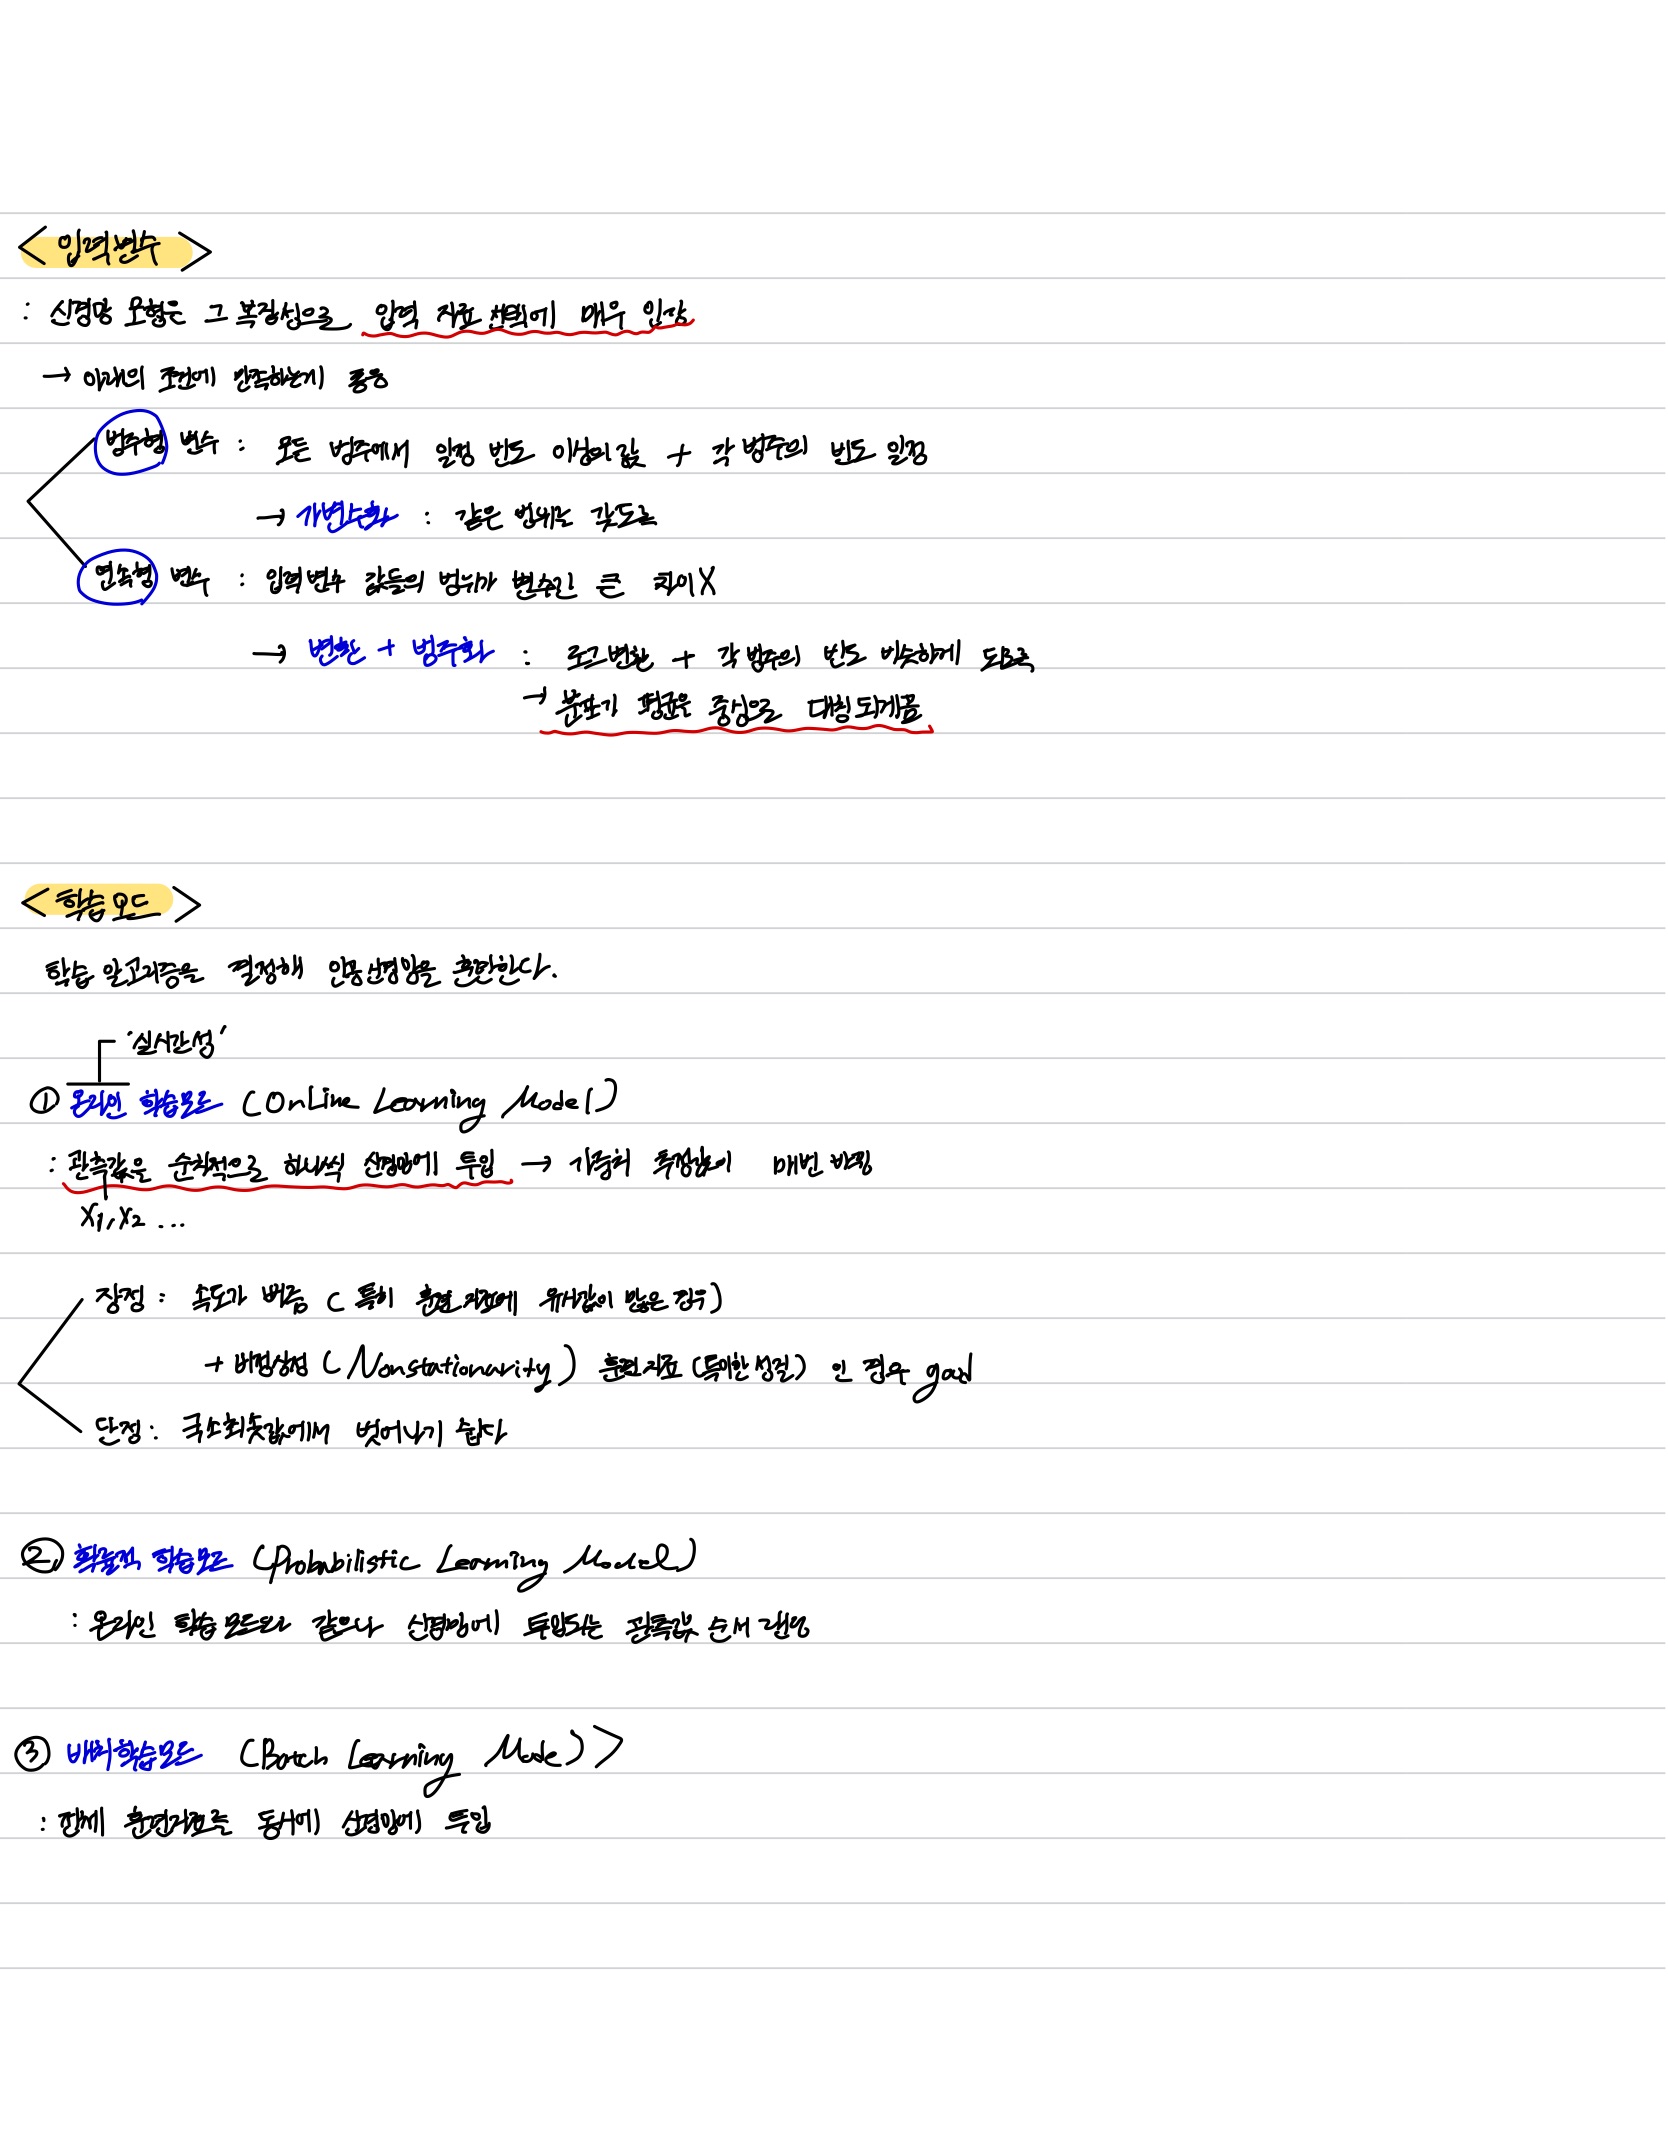 <입력변수>
: 신경망 모형은 그 복잡성으로 입력 자료 선택에 매우 민감
→ 아래의 조건에 만족하는게 좋음
범주형 변수 : 모든 범주에서 일정 빈도 이상의 값 + 각 범주의 빈도 일정
→ 가변수화 : 같은 범위를 갖도록
연속형 변수 : 입력변수 값들의 범위가 변수간 큰 차이X
→ 변환 + 범주화 : 로그변환 + 각 범주의 빈도 비슷하게 되도록
→ 분포가 평균은 중심으로 대칭되게끔
<학습모드>
학습 알고리즘을 결정해 인공신경망을 훈련한다.
'실시간성'
① 온라인 학습모드 (Online Learning Model)
: 관측값을 순차적으로 하나씩 신경망에 투입 → 가중치 추정값이 매번 바뀜
X1, X2 ...
장점 : 속도가 빠름 (특히 훈련자료에 유사값이 많은 경우)
+ 비정상성 (Nonstationarity) 훈련자료 (특이한 성질) 인 경우 good
단점 : 국소최솟값에서 벗어나기 쉽다
② 확률적 학습모드 (Probabilistic Learning Model)
: 온라인 학습모드와 같으나 신경망에 투입되는 관측값 순서 랜덤
③ 배치학습모드 (Batch Learning Mode)>
: 전체 훈련자료를 동시에 신경망에 투입